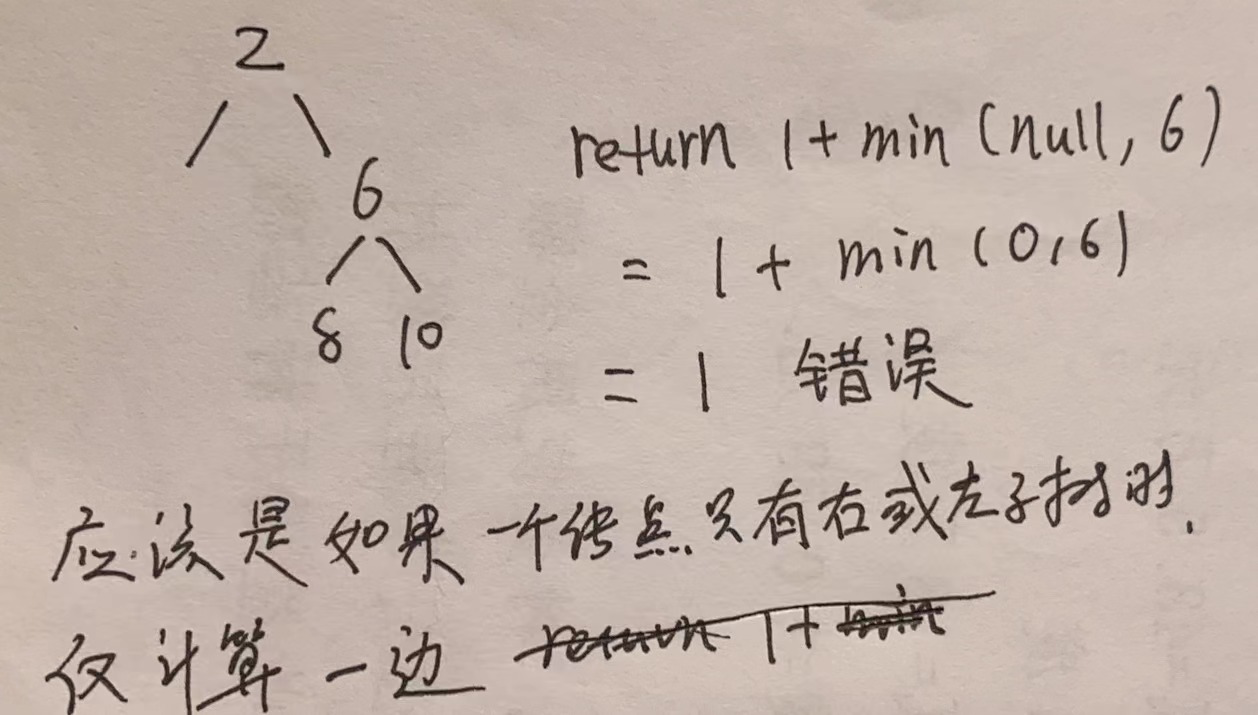 2
6
8 10
return 1 + min (null, 6)
= 1 + min (0, 6)
= 1 错误
应该是如果一个结点只有右或左子树时.
仅计算一边 return 1 + min